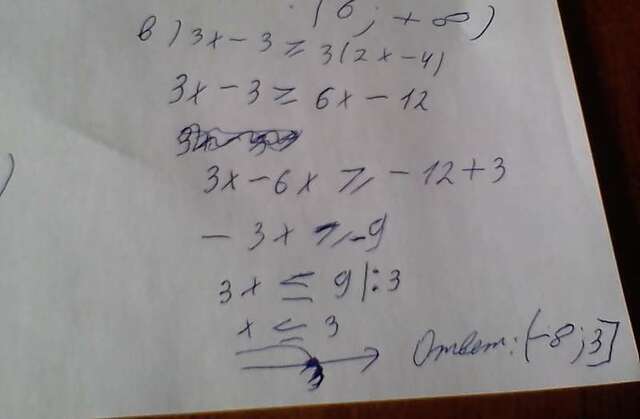 (6; +∞)
в) 3x - 3 ≥ 3(2x - 4)
3x - 3 ≥ 6x - 12
3x - 6x ≥ - 12 + 3
- 3x ≥ -9
3x ≤ 9 |:3
x ≤ 3
3
Ответ: (-∞; 3]